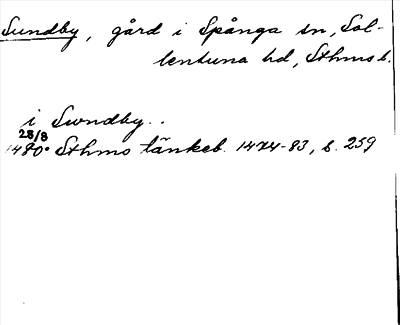 Sundby, gård i Spånga sn, Sol-
lentuna hd, Sthms l.
i Swndby..
28/8
1480 Sthms tänkeb. 1474-83, s. 259